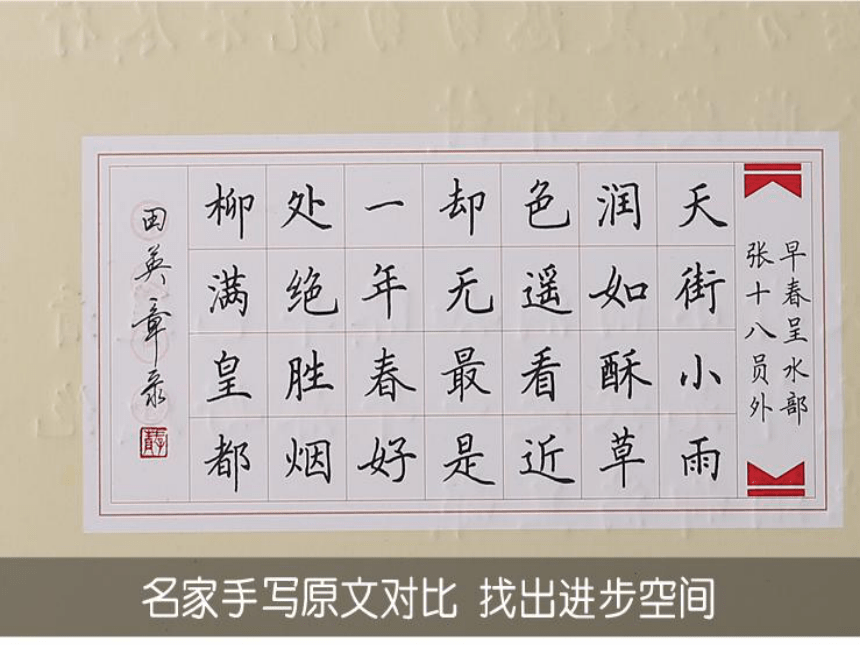 早春呈水部
张十八员外
天街小雨
润如酥草
色遥看近
却无最是
一年春好
处绝胜烟
柳满皇都
田英章录
名家手写原文对比 找出进步空间